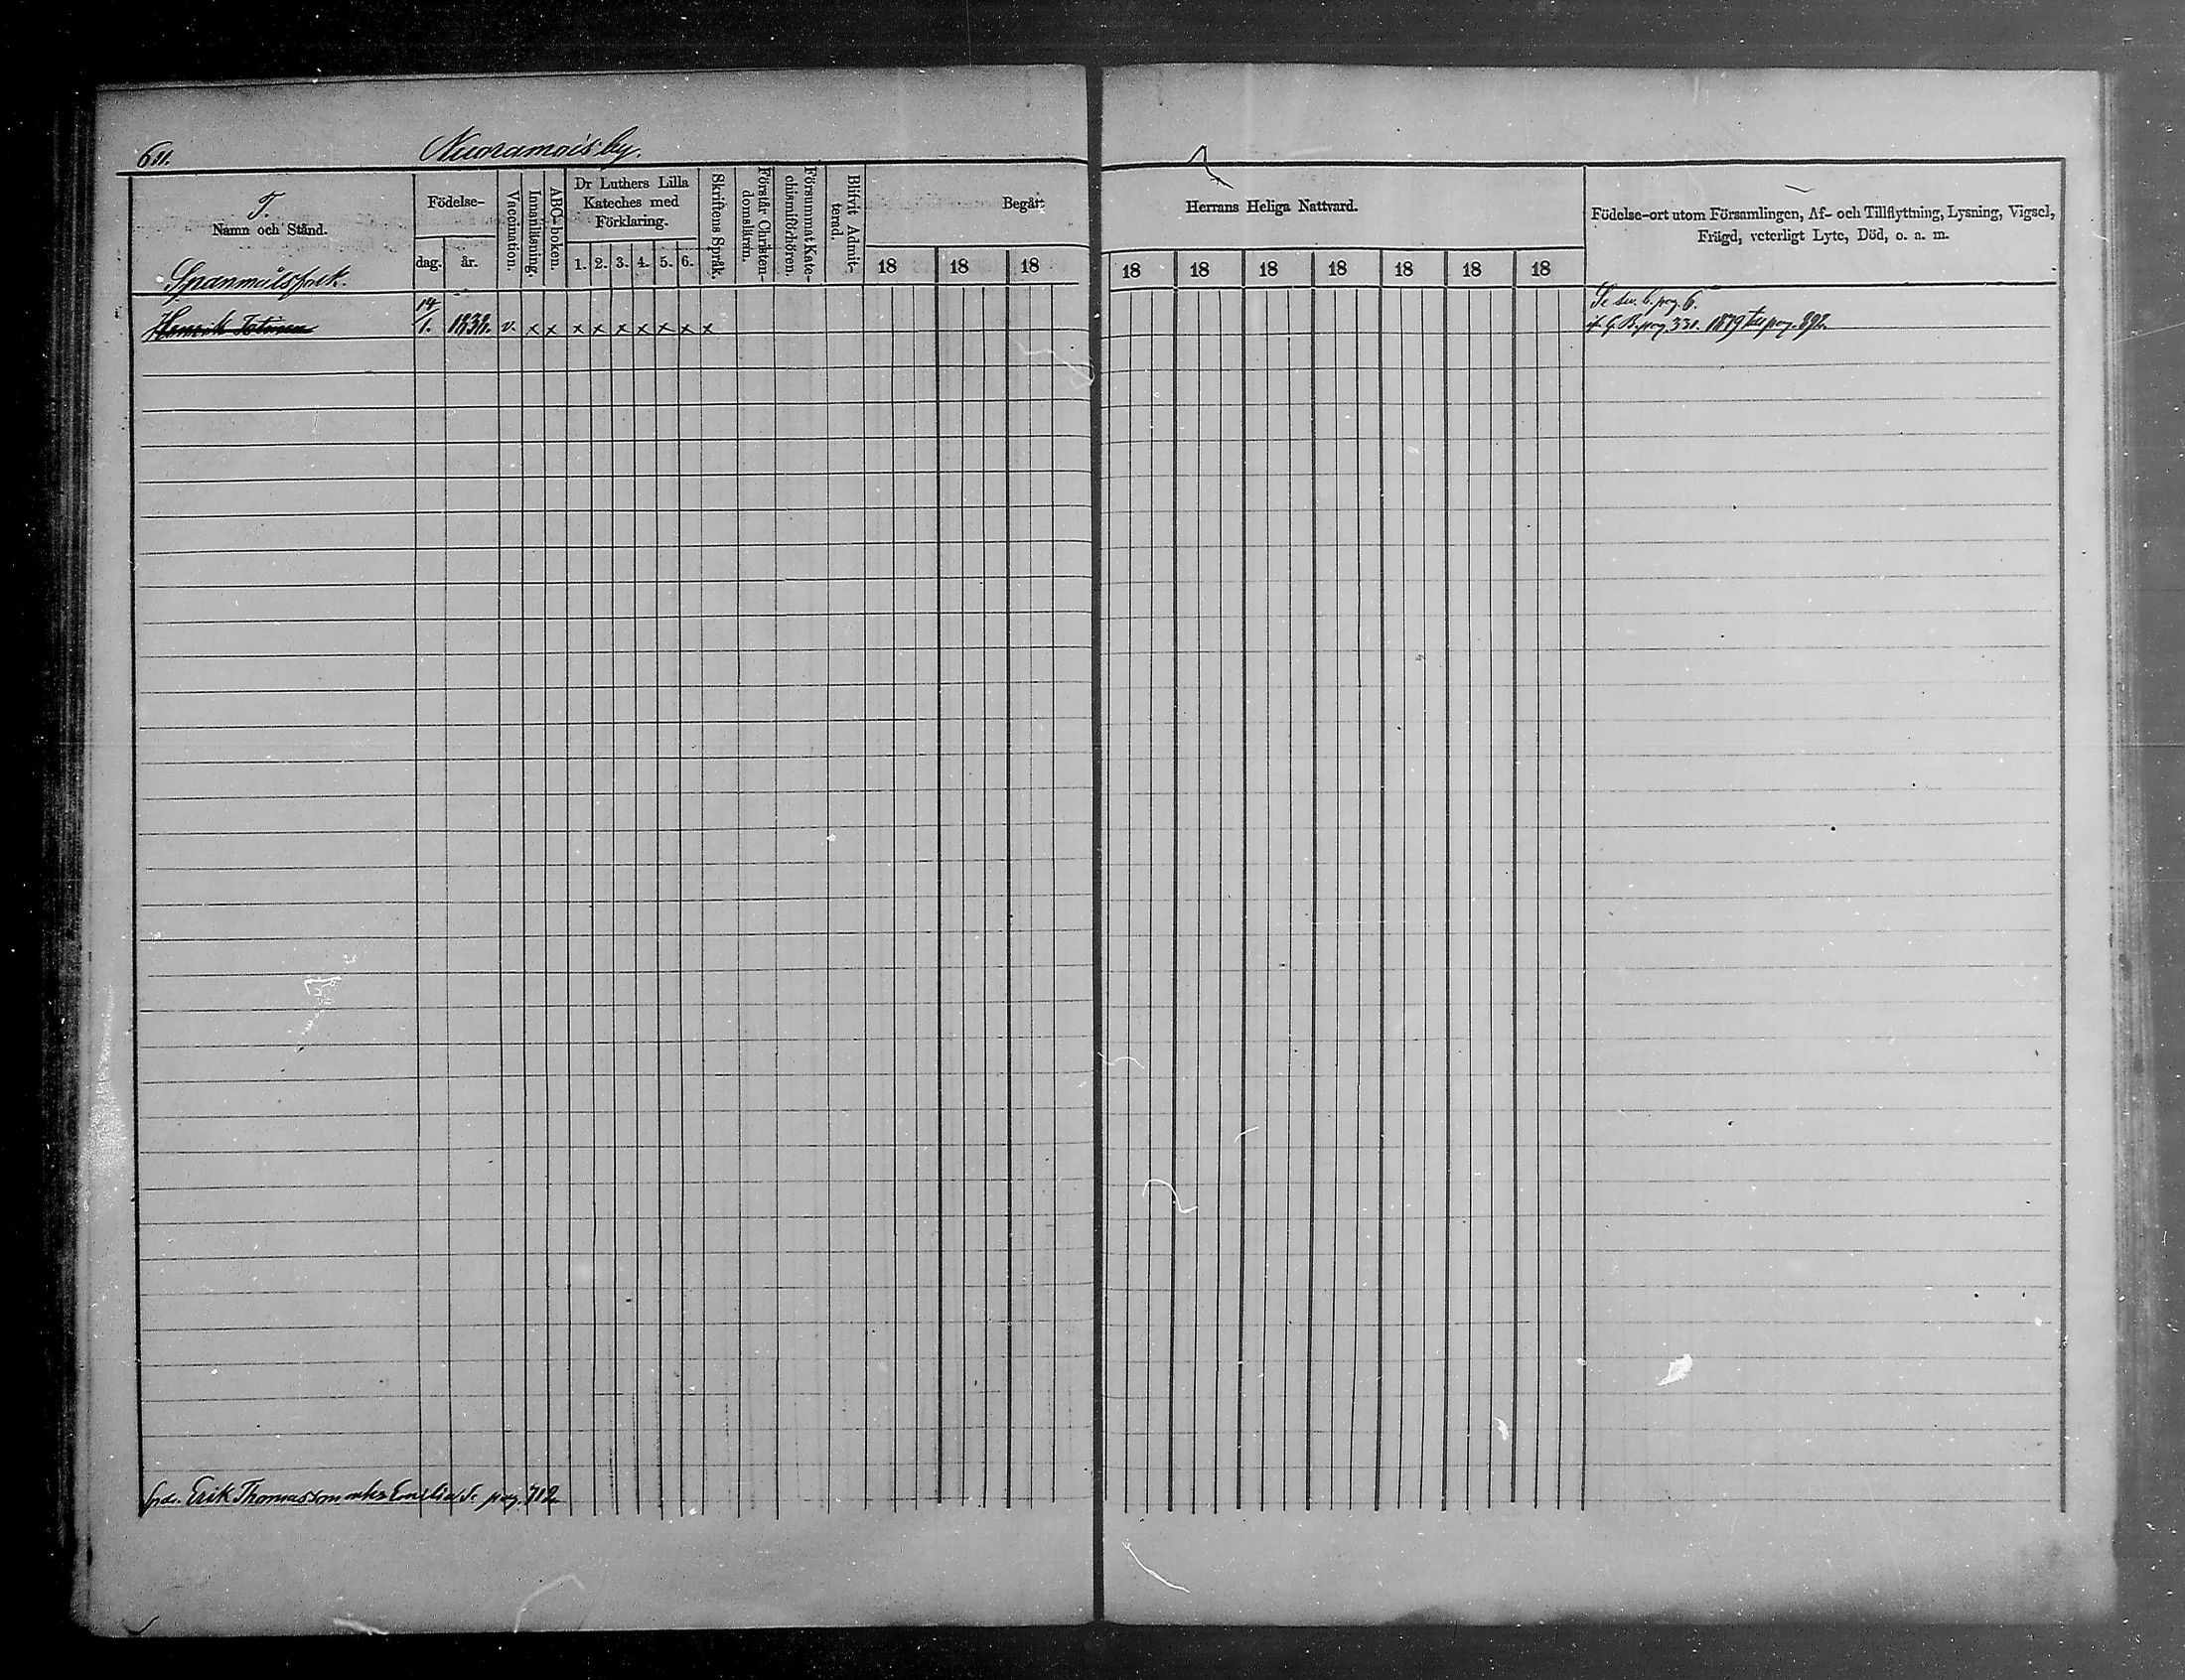 611. Nuoramois by.
T.
Namn och Stånd.
Spanmålsfolk.
Födelse-
dag. år.
Vaccination.
Innanläsning.
ABC-boken.
Dr Luthers Lilla
Kateches med
Förklaring.
1. 2. 3. 4. 5. 6.
Skriftens Språk.
Förstår Christen-
domsläran.
Försummat Kate-
chismiförhören.
Blifvit Admit-
terad.
Begår
18 18 18
Herrans Heliga Nattvard.
18 18 18 18 18 18 18
Födelse-ort utom Församlingen, Af- och Tillflyttning, Lysning, Vigsel,
Frägd, veterligt Lyte, Död, o. a. m.
Henrik 14/1. 1838. v. x x x x x x x x x
pag. 6.
pag. 331. 1879 till pag. 892.
Erik Thomasson Emilia pag. 712